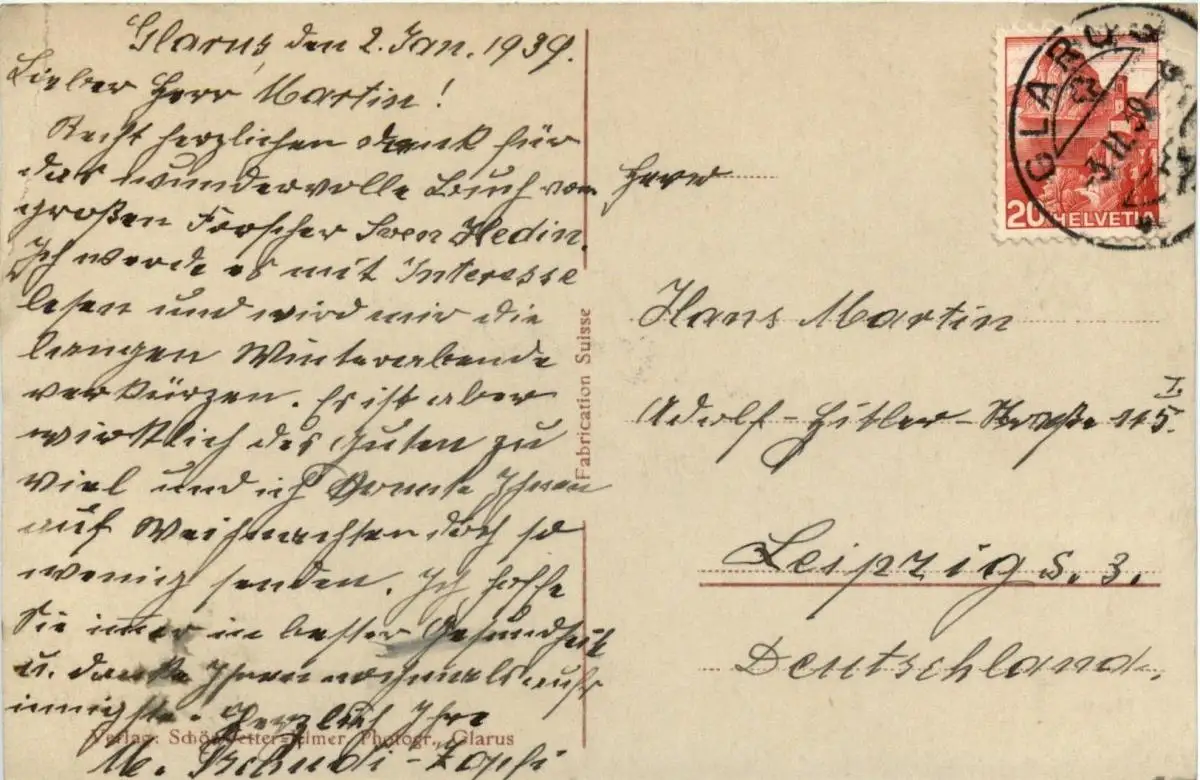 Glarus, den 2. Jan. 1939.
Lieber Herr Martin!
Recht herzlichen Dank für
das wundervolle Buch vom
großen Forscher Sven Hedin.
Ich werde es mit Interesse
lesen und wird mir die
langen Winterabende
verkürzen. Es ist aber
wirklich des Guten zu
viel und ich konnte Ihnen
auf Weihnachten doch so
wenig senden. Ich hoffe
Sie immer in bester Gesundheit
u. danke Ihnen nochmals aufs
innigste. Herzlich Ihre
M. Tschudi-Zopfi
Verlag: Schönwetter-Elmer, Photogr., Glarus
Fabrication Suisse
GLARUS
20 HELVETIA
Herrn
Hans Martin
Adolf-Hitler-Straße 115 I.
Leipzig S. 3.
Deutschland.